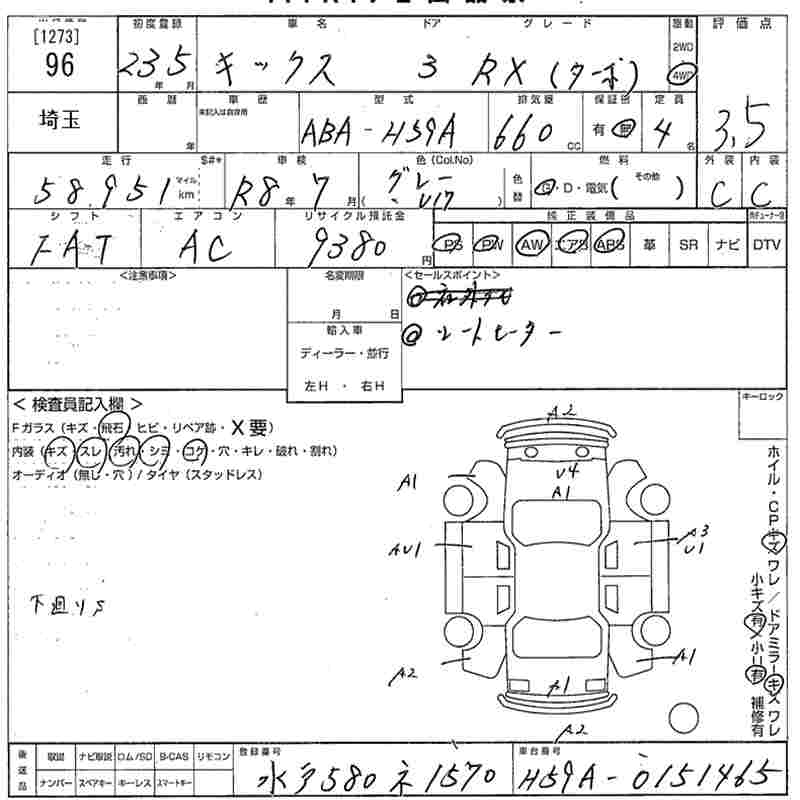 [1273]
96
埼玉
初度登録 車名 ドア グレード 駆動 評価点
23 5 キックス 3 RX (ターボ) 2WD
年 月 4WD
西暦 車歴 型式 排気量 保証書 定員
未記入は自家用
年 ABA-H59A 660 CC 有 無 4 名 3,5
走行 $#* 車検 色 (Col.No) 色替 燃料 外装 内装
58,951 マイル km R8 年 7 月 グレー ( U17 ) G・D・電気 (その他 ) C C
シフト エアコン リサイクル預託金 純正装備品
FAT AC 9380 円 PS PW AW エアB ABS 革 SR ナビ DTV
<注意事項> 名変期限 <セールスポイント>
月 日
輸入車
@シートヒーター
ディーラー・並行
左H ・ 右H
< 検査員記入欄 > キーロック
Fガラス (キズ・飛石・ヒビ・リペア跡・X要)
内装 (キズ・スレ・汚れ・シミ・コゲ・穴・キレ・破れ・割れ)
オーディオ (無し・穴) / タイヤ (スタッドレス)
A2
U4
A1
A1
AU1
A3
U1
下廻りS
A2
A1
A1
A2
ホイル・CPキズ ワレ / ドアミラーキズ ワレ
小キズ有 / 小U有 補修有
後送品 取説 ナビ取説 ロム/SD B-CAS リモコン 登録番号 車台番号
ナンバー スペアキー キーレス スマートキー 水戸580 ネ1570 H59A-0151465